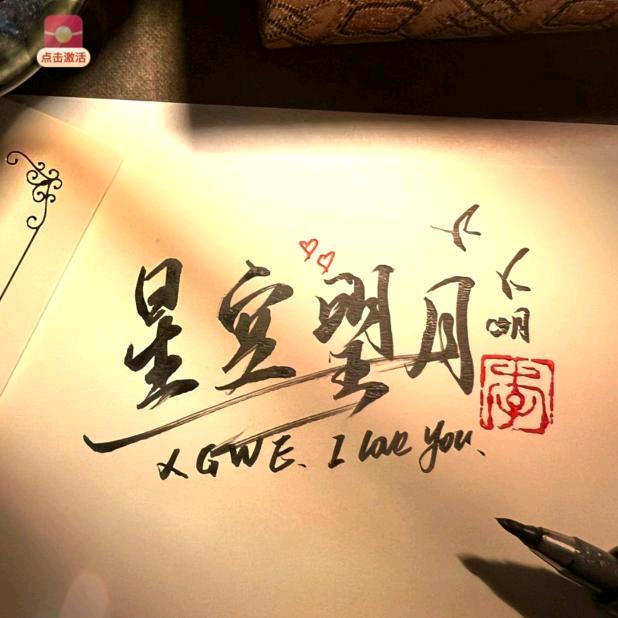 点击激活
星空望月
人明
李
XGWE. I love You.